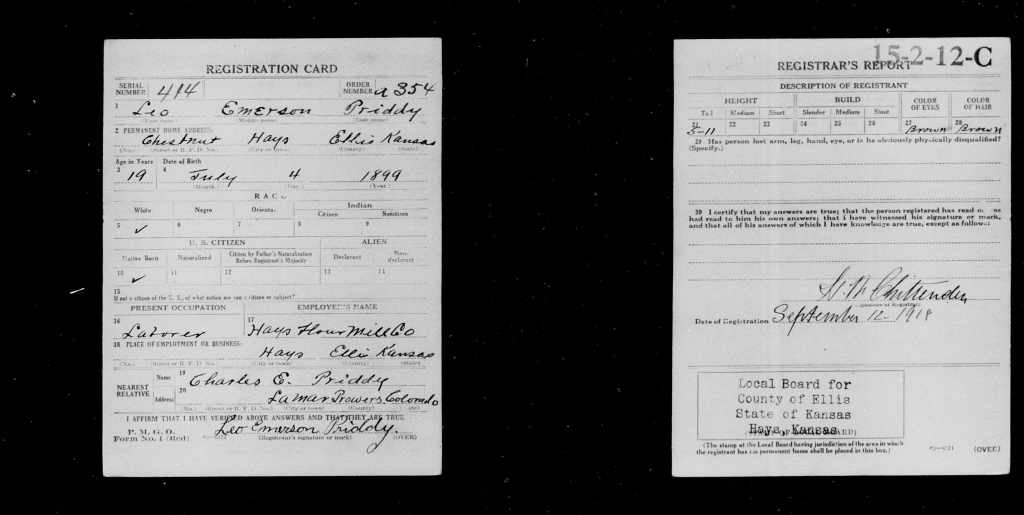 REGISTRATION CARD
SERIAL NUMBER 414 ORDER NUMBER a 354
1 Leo Emerson Priddy
2 PERMANENT HOME ADDRESS:
Chestnut Hays Ellis Kansas
(No.) (Street or R. F. D. No.) (City or town) (County) (State)
Age in Years Date of Birth
3 19 4 July 4 1899
(Month.) (Day.) (Year.)
RACE
White Negro Oriental Indian
Citizen Noncitizen
5 ✓ 6 7 8 9
U. S. CITIZEN ALIEN
Native Born Naturalized Citizen by Father's Naturalization Before Registrant's Majority Declarant Non-declarant
10 ✓ 11 12 13 14
15
If not a citizen of the U. S., of what nation are you a citizen or subject?
PRESENT OCCUPATION EMPLOYER'S NAME
16 Laborer 17 Hays Flour Mill Co
18 PLACE OF EMPLOYMENT OR BUSINESS:
Hays Ellis Kansas
(No.) (Street or R. F. D. No.) (City or town) (County) (State)
NEAREST RELATIVE
Name 19 Charles E. Priddy
Address 20 Lamar Prowers Colorado
(No.) (Street or R. F. D. No.) (City or town) (County) (State)
I AFFIRM THAT I HAVE VERIFIED ABOVE ANSWERS AND THAT THEY ARE TRUE
P. M. G. O.
Form No. 1 (Red) Leo Emerson Priddy.
(Registrant's signature or mark) (OVER)
15-2-12-C
REGISTRAR'S REPORT
DESCRIPTION OF REGISTRANT
HEIGHT BUILD COLOR OF EYES COLOR OF HAIR
Tall Medium Short Slender Medium Stout
21 5-11 22 23 24 25 26 27 Brown 28 Brown
29 Has person lost arm, leg, hand, eye, or is he obviously physically disqualified?
(Specify.)
30 I certify that my answers are true; that the person registered has read or has
had read to him his own answers; that I have witnessed his signature or mark,
and that all of his answers of which I have knowledge are true, except as follows:
Chittenden
(Signature of Registrar)
Date of Registration September 12-1918
Local Board for
County of Ellis
State of Kansas
Hays, Kansas
(STAMP OF LOCAL BOARD)
(The stamp of the Local Board having jurisdiction of the area in which
the registrant has his permanent home shall be placed in this box.)
(OVER)